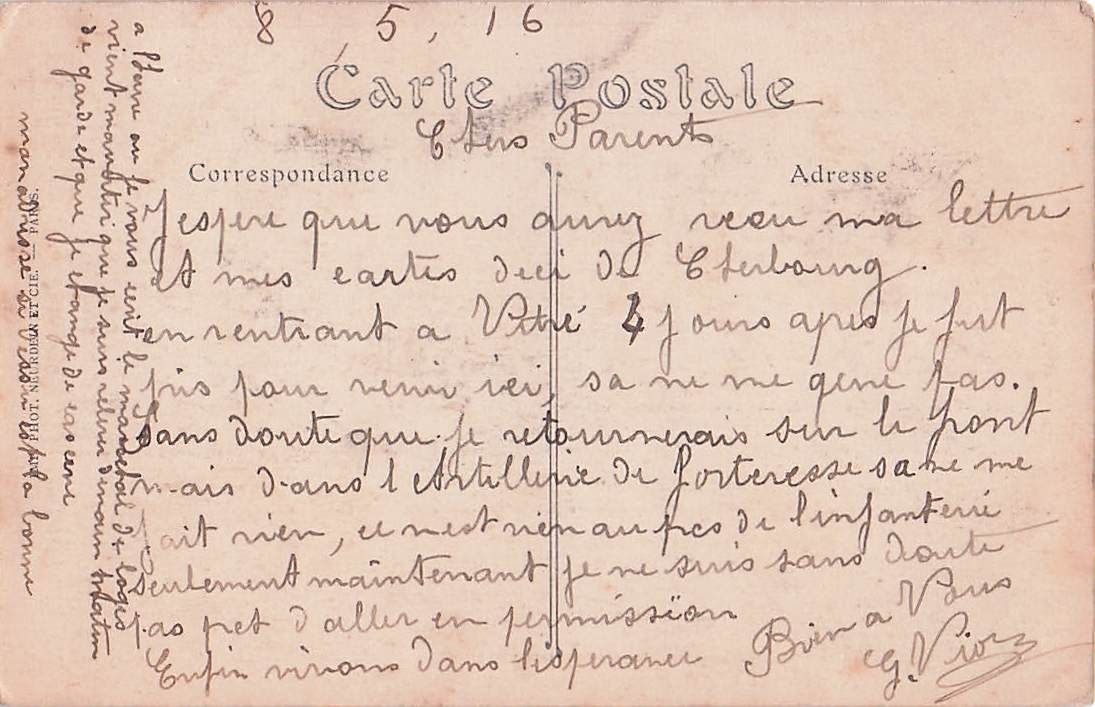 8, 5, 16
Carte Postale
Chers Parents
Correspondance
Adresse
J'espere que vous aurez recu ma lettre
et mes cartes deci de Cherbourg.
en rentrant a Vitré 4 jours apres je fut
pris pour venir ici, sa ne me gene pas.
Sans doute que je retournerais sur le front
mais dans l'Artillerie de forteresse sa ne me
fait rien, ce n'est rien au pres de l'infanterie
Seulement maintenant je ne suis sans doute
pas pret d'aller en permission
Enfin vivons dans l'esperance
Bien a Vous
G. Viot
a l'heure ou je vous ecrit le marechal de logis
vient m'avertir que je suis relever demain matin
de garde et que je change de caserne
mon adresse ci dessus est la bonne
PHOT. NEURDEIN ET CIE. — PARIS.